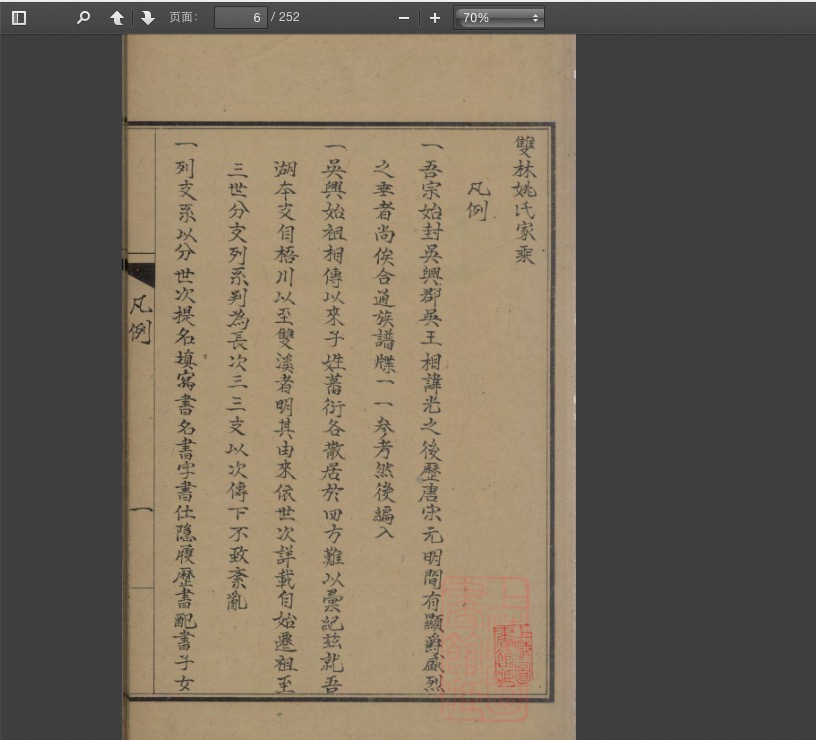 页面： 6 / 252 70%
雙林姚氏家乘
凡例
一吾宗始封吳興郡吳王相諱光之後歷唐宋元明間有顯爵威烈
之垂者尚俟合通族譜牒一一參考然後編入
一吳興始祖相傳以來子姓蕃衍各散居於四方難以彙紀茲就吾
湖本支自梧川以至雙溪者明其由來依世次詳載自始遷祖至
三世分支列系判為長次三三支以次傳下不致紊亂
一列支系以分世次提名填寫書名書字書仕隱履歷書配書子女
凡例
一